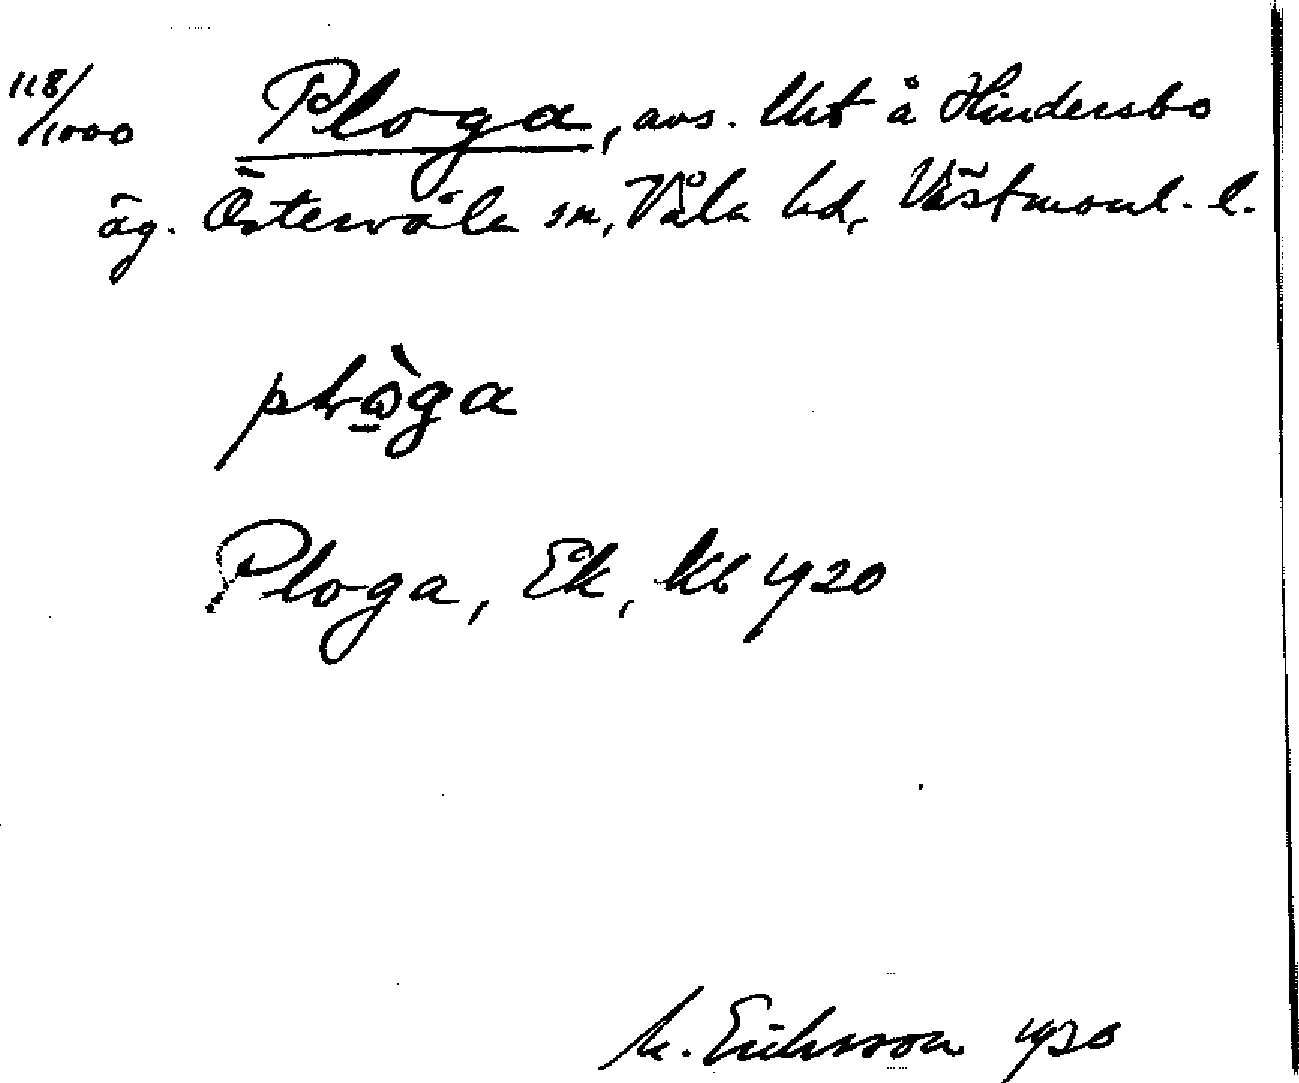 118/1000 Ploga, avs. lht å Hindersbo
äg. Östervåla sn, Våla hd, Västmanl. l.
plòga
Ploga, Ek, kb 1920
M. Eriksson 1930